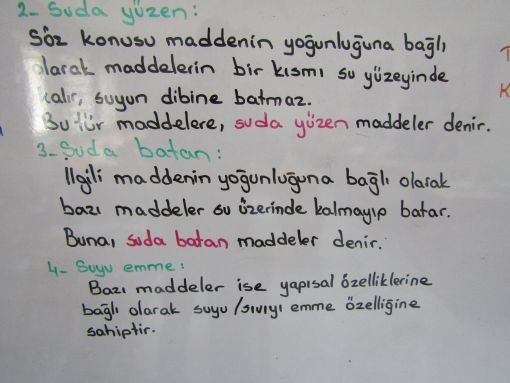 2- Suda yüzen:
Söz konusu maddenin yoğunluğuna bağlı
olarak maddelerin bir kısmı su yüzeyinde
kalır, suyun dibine batmaz.
Bu tür maddelere, suda yüzen maddeler denir.
3- Suda batan:
İlgili maddenin yoğunluğuna bağlı olarak
bazı maddeler su üzerinde kalmayıp batar.
Buna, suda batan maddeler denir.
4- Suyu emme:
Bazı maddeler ise yapısal özelliklerine
bağlı olarak suyu/sıvıyı emme özelliğine
sahiptir.